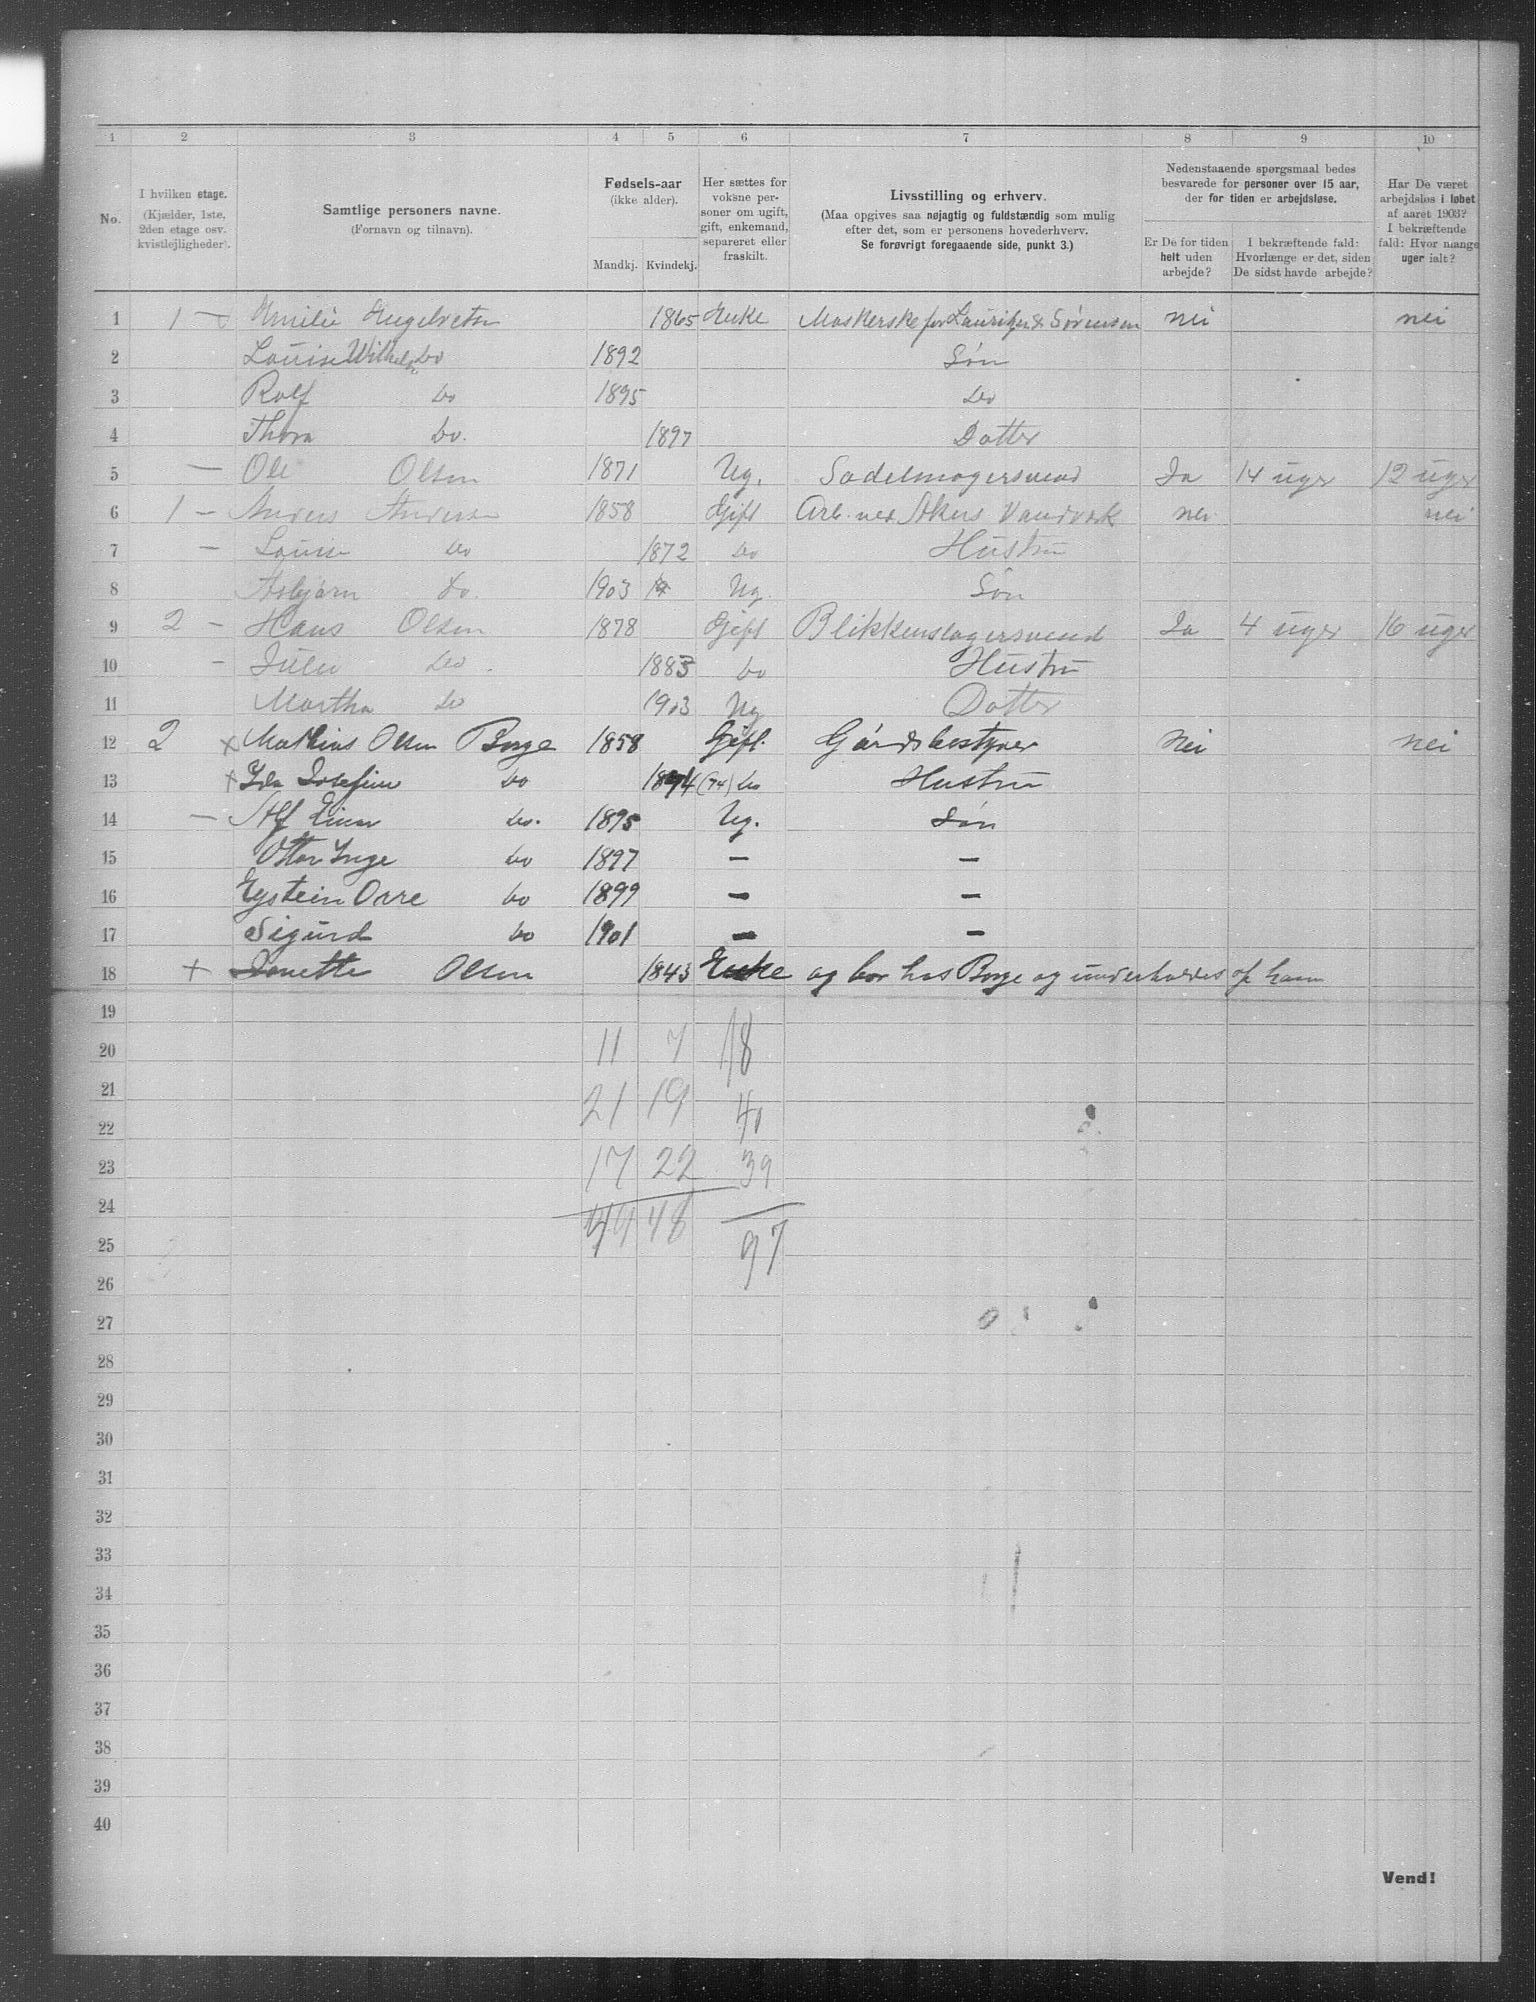 1 2 3 4 5 6 7 8 9 10
No.
I hvilken etage. (Kjælder, 1ste, 2den etage osv. kvistlejligheder).
Samtlige personers navne. (Fornavn og tilnavn).
Fødsels-aar (ikke alder).
Mandkj. Kvindekj.
Her sættes for voksne personer om ugift, gift, enkemand, separeret eller fraskilt.
Livsstilling og erhverv.
(Maa opgives saa nøjagtig og fuldstændig som mulig efter det, som er personens hovederhverv. Se forøvrigt foregaaende side, punkt 3.)
Nedenstaaende spørgsmaal bedes besvarede for personer over 15 aar, der for tiden er arbejdsløse.
Er De for tiden helt uden arbejde?
I bekræftende fald: Hvorlænge er det, siden De sidst havde arbejde?
Har De været arbejdsløs i løbet af aaret 1903? I bekræftende fald: Hvor mange uger ialt?
1 1 — Amilie 1865 Enke Sørensen nei nei
2 Louise Wilhelm do 1892 Søn
3 Rolf do 1895 do
4 Thora do. 1897 Datter
5 — Ole Olsen 1871 Ug. Sadelmagersvend Ja 14 uger 12 uger
6 1 — Anders Andersen 1858 Gift Arb. ved Akers Vandværk nei nei
7 — Louise do 1872 do Hustru
8 Asbjørn do. 1903 Ug. Søn
9 2 — Hans Olsen 1878 Gift Blikkenslagersvend Ja 4 uger 16 uger
10 — Julie do. 1883 do Hustru
11 Martha do 1903 Ug Datter
12 2 x Mathias Olsen Borge 1858 Gift. Gårdsbestyrer Nei nei
13 + Ida Josefine do 1874 (74) do Hustru
14 — Alf Einar do. 1895 Ug. Søn
15 Ottar Inge do 1897 — —
16 Eystein Orre do 1899 — —
17 Sigurd do 1901 — —
18 + Olsen 1843 Enke og bor hos Borge og underholdes af ham
19
20 11 7 18
21 21 19
22 40
23 17 22 39
24 49 48
25 97
26
27
28
29
30
31
32
33
34
35
36
37
38
39
40
Vend!